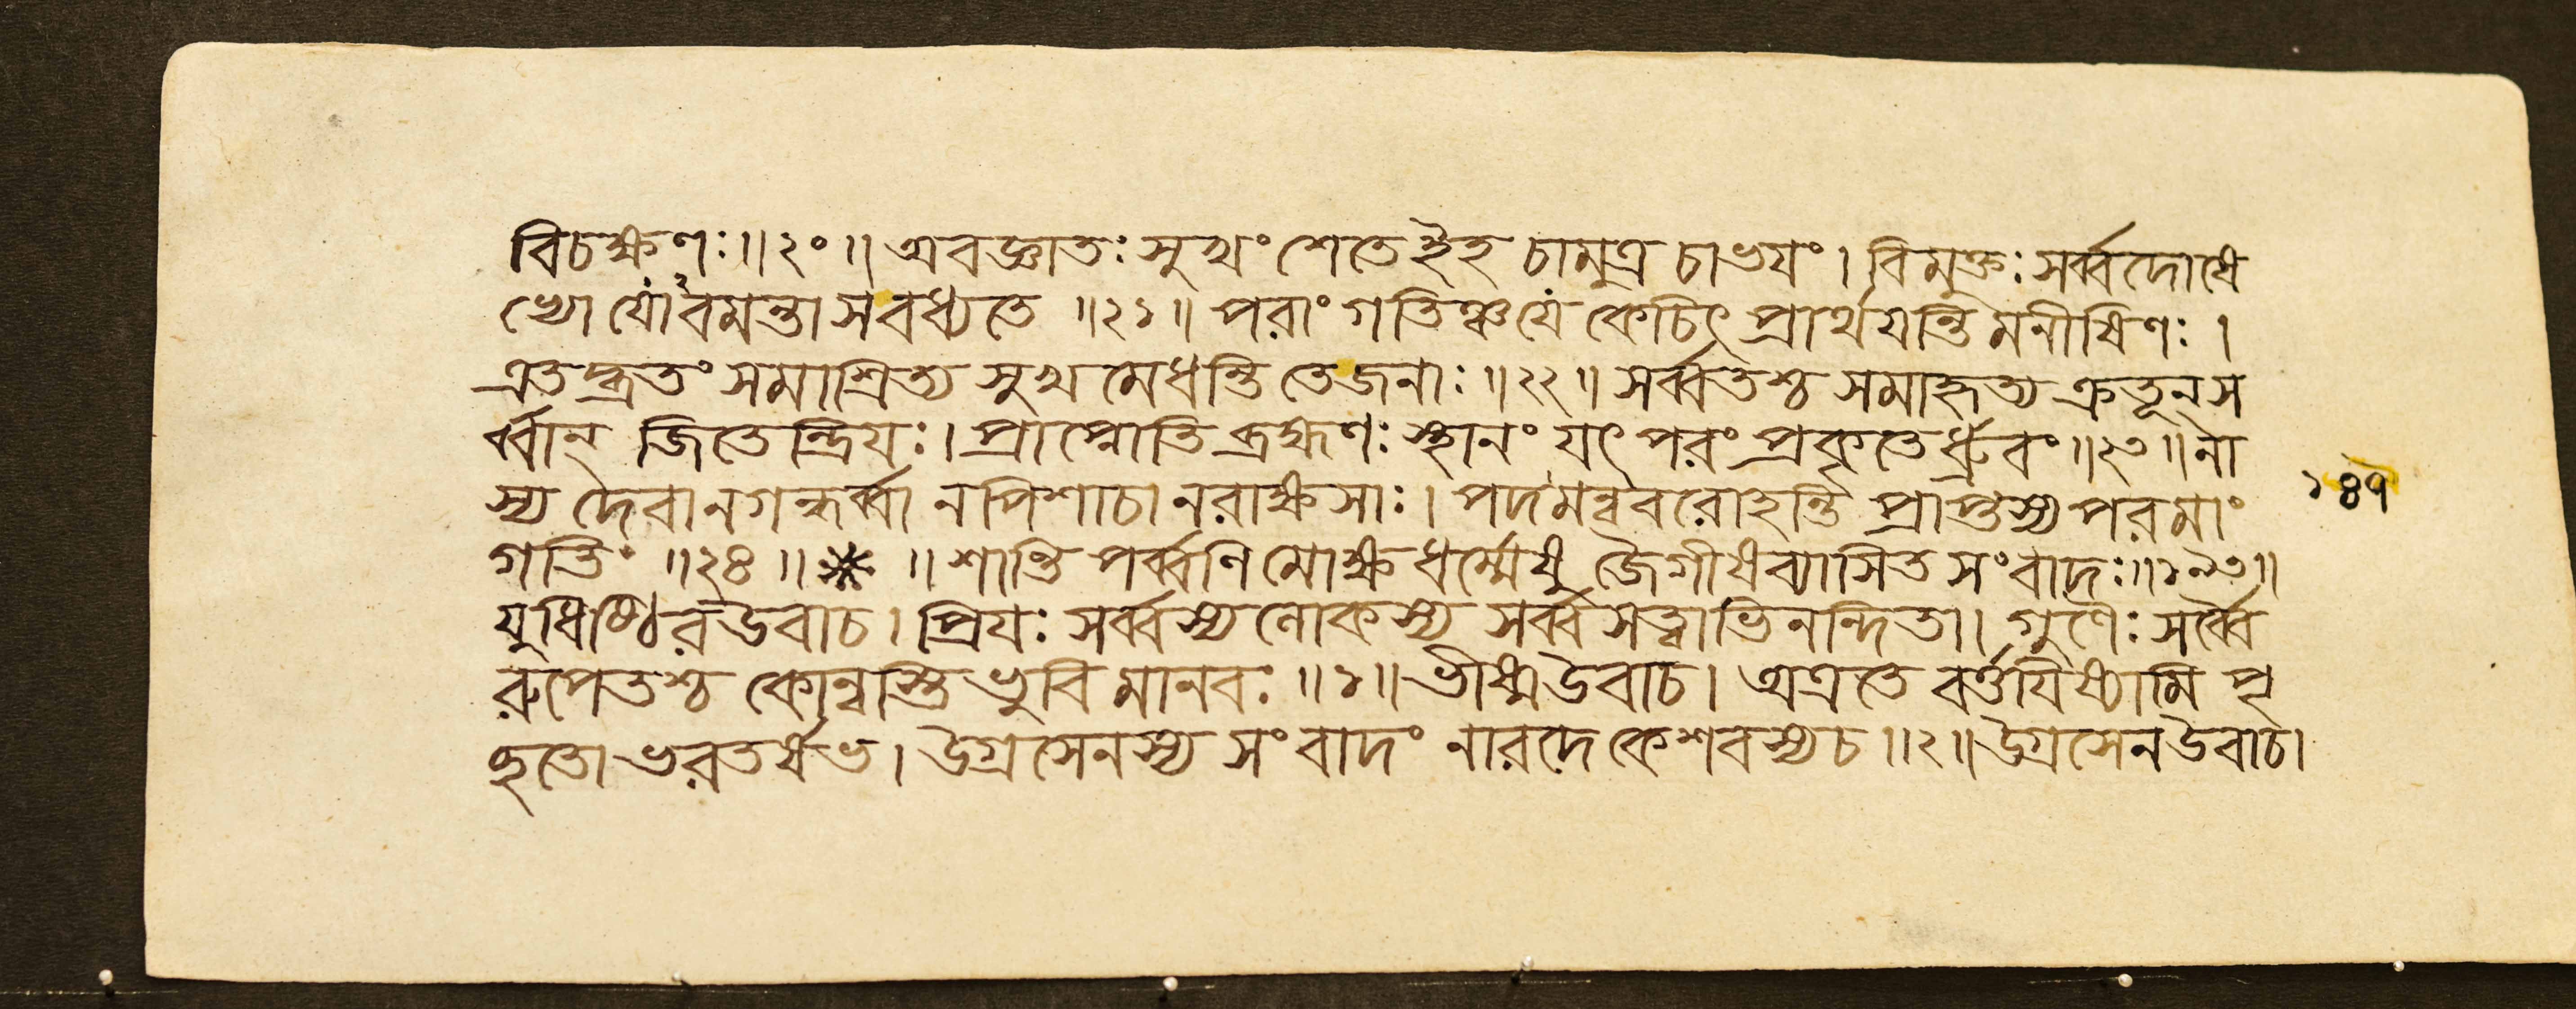 বিচক্ষণঃ॥২০॥ অবজ্ঞাতঃ সুখং শেতে ইহ চামুত্র চাভয়ং। বিমুক্তঃ সর্ব্বদোষে
ভ্যো যোঽবমন্তা স বধ্যতে ॥২১॥ পরাং গতিঞ্চ যে কেচিৎ প্রার্থয়ন্তি মনীষিণঃ।
এতদ্ব্রতং সমাশ্রিত্য সুখমেধন্তি তে জনাঃ॥২২॥ সর্ব্বতশ্চ সমাহৃত্য ক্রতূন্ স
র্ব্বান্ জিতেন্দ্রিয়ঃ। প্রাপ্নোতি ব্রহ্মণঃ স্থানং যৎ পরং প্রকৃতের্ধ্রুবং॥২৩॥ না
স্য দেবা ন গন্ধর্ব্বা ন পিশাচা ন রাক্ষসাঃ। পদমন্ববরোহন্তি প্রাপ্তস্য পরমাং
গতিং ॥২৪॥ * ॥ শান্তি পর্ব্বণি মোক্ষধর্ম্মেষু জৈগীষব্যাসিত সংবাদঃ॥১৯৩॥
যুধিষ্ঠির উবাচ। প্রিয়ঃ সর্ব্বস্য লোকস্য সর্ব্বসত্ত্বাভিনন্দিতা। গুণৈঃ সর্ব্বৈ
রুপেতশ্চ কোন্বস্তি ভুবি মানবঃ ॥১॥ ভীষ্ম উবাচ। অত্র তে বর্ত্তয়িষ্যামি পৃ
চ্ছতো ভরতর্ষভ। উগ্রসেনস্য সংবাদং নারদে কেশবস্য চ॥২॥ উগ্রসেন উবাচ।
১৪৭